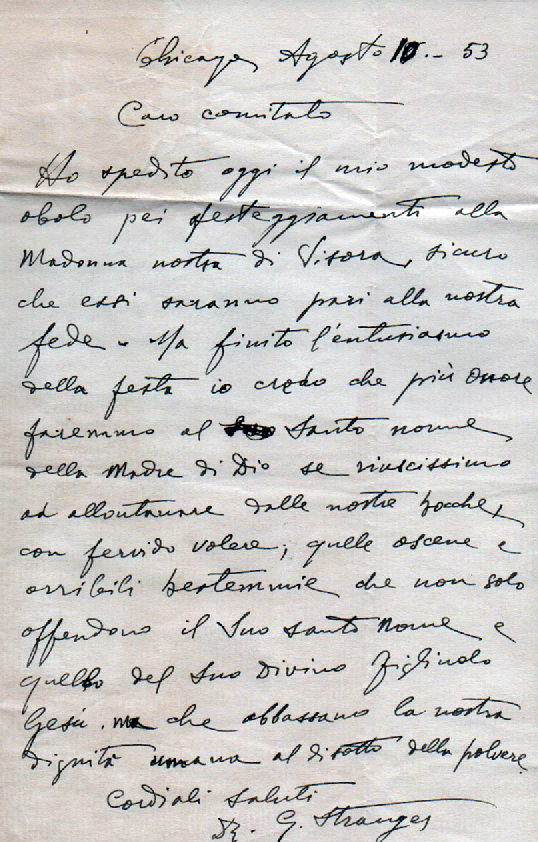 Chicago, Agosto 10. - 53
Caro comitato
Ho spedito oggi il mio modesto
obolo pei festeggiamenti alla
Madonna nostra di Visora, sicuro
che essi saranno pari alla nostra
fede. Ma finito l'entusiasmo
della festa io credo che più onore
faremmo al Santo nome
della Madre di Dio se riuscissimo
ad allontanare dalle nostre bocche,
con fervido volere, quelle oscene e
orribili bestemmie che non solo
offendono il Suo santo Nome e
quello del Suo Divino Figliuolo
Gesù. ma che abbassano la nostra
dignità umana al disotto della polvere.
Cordiali Saluti
Dr. G. Stranges